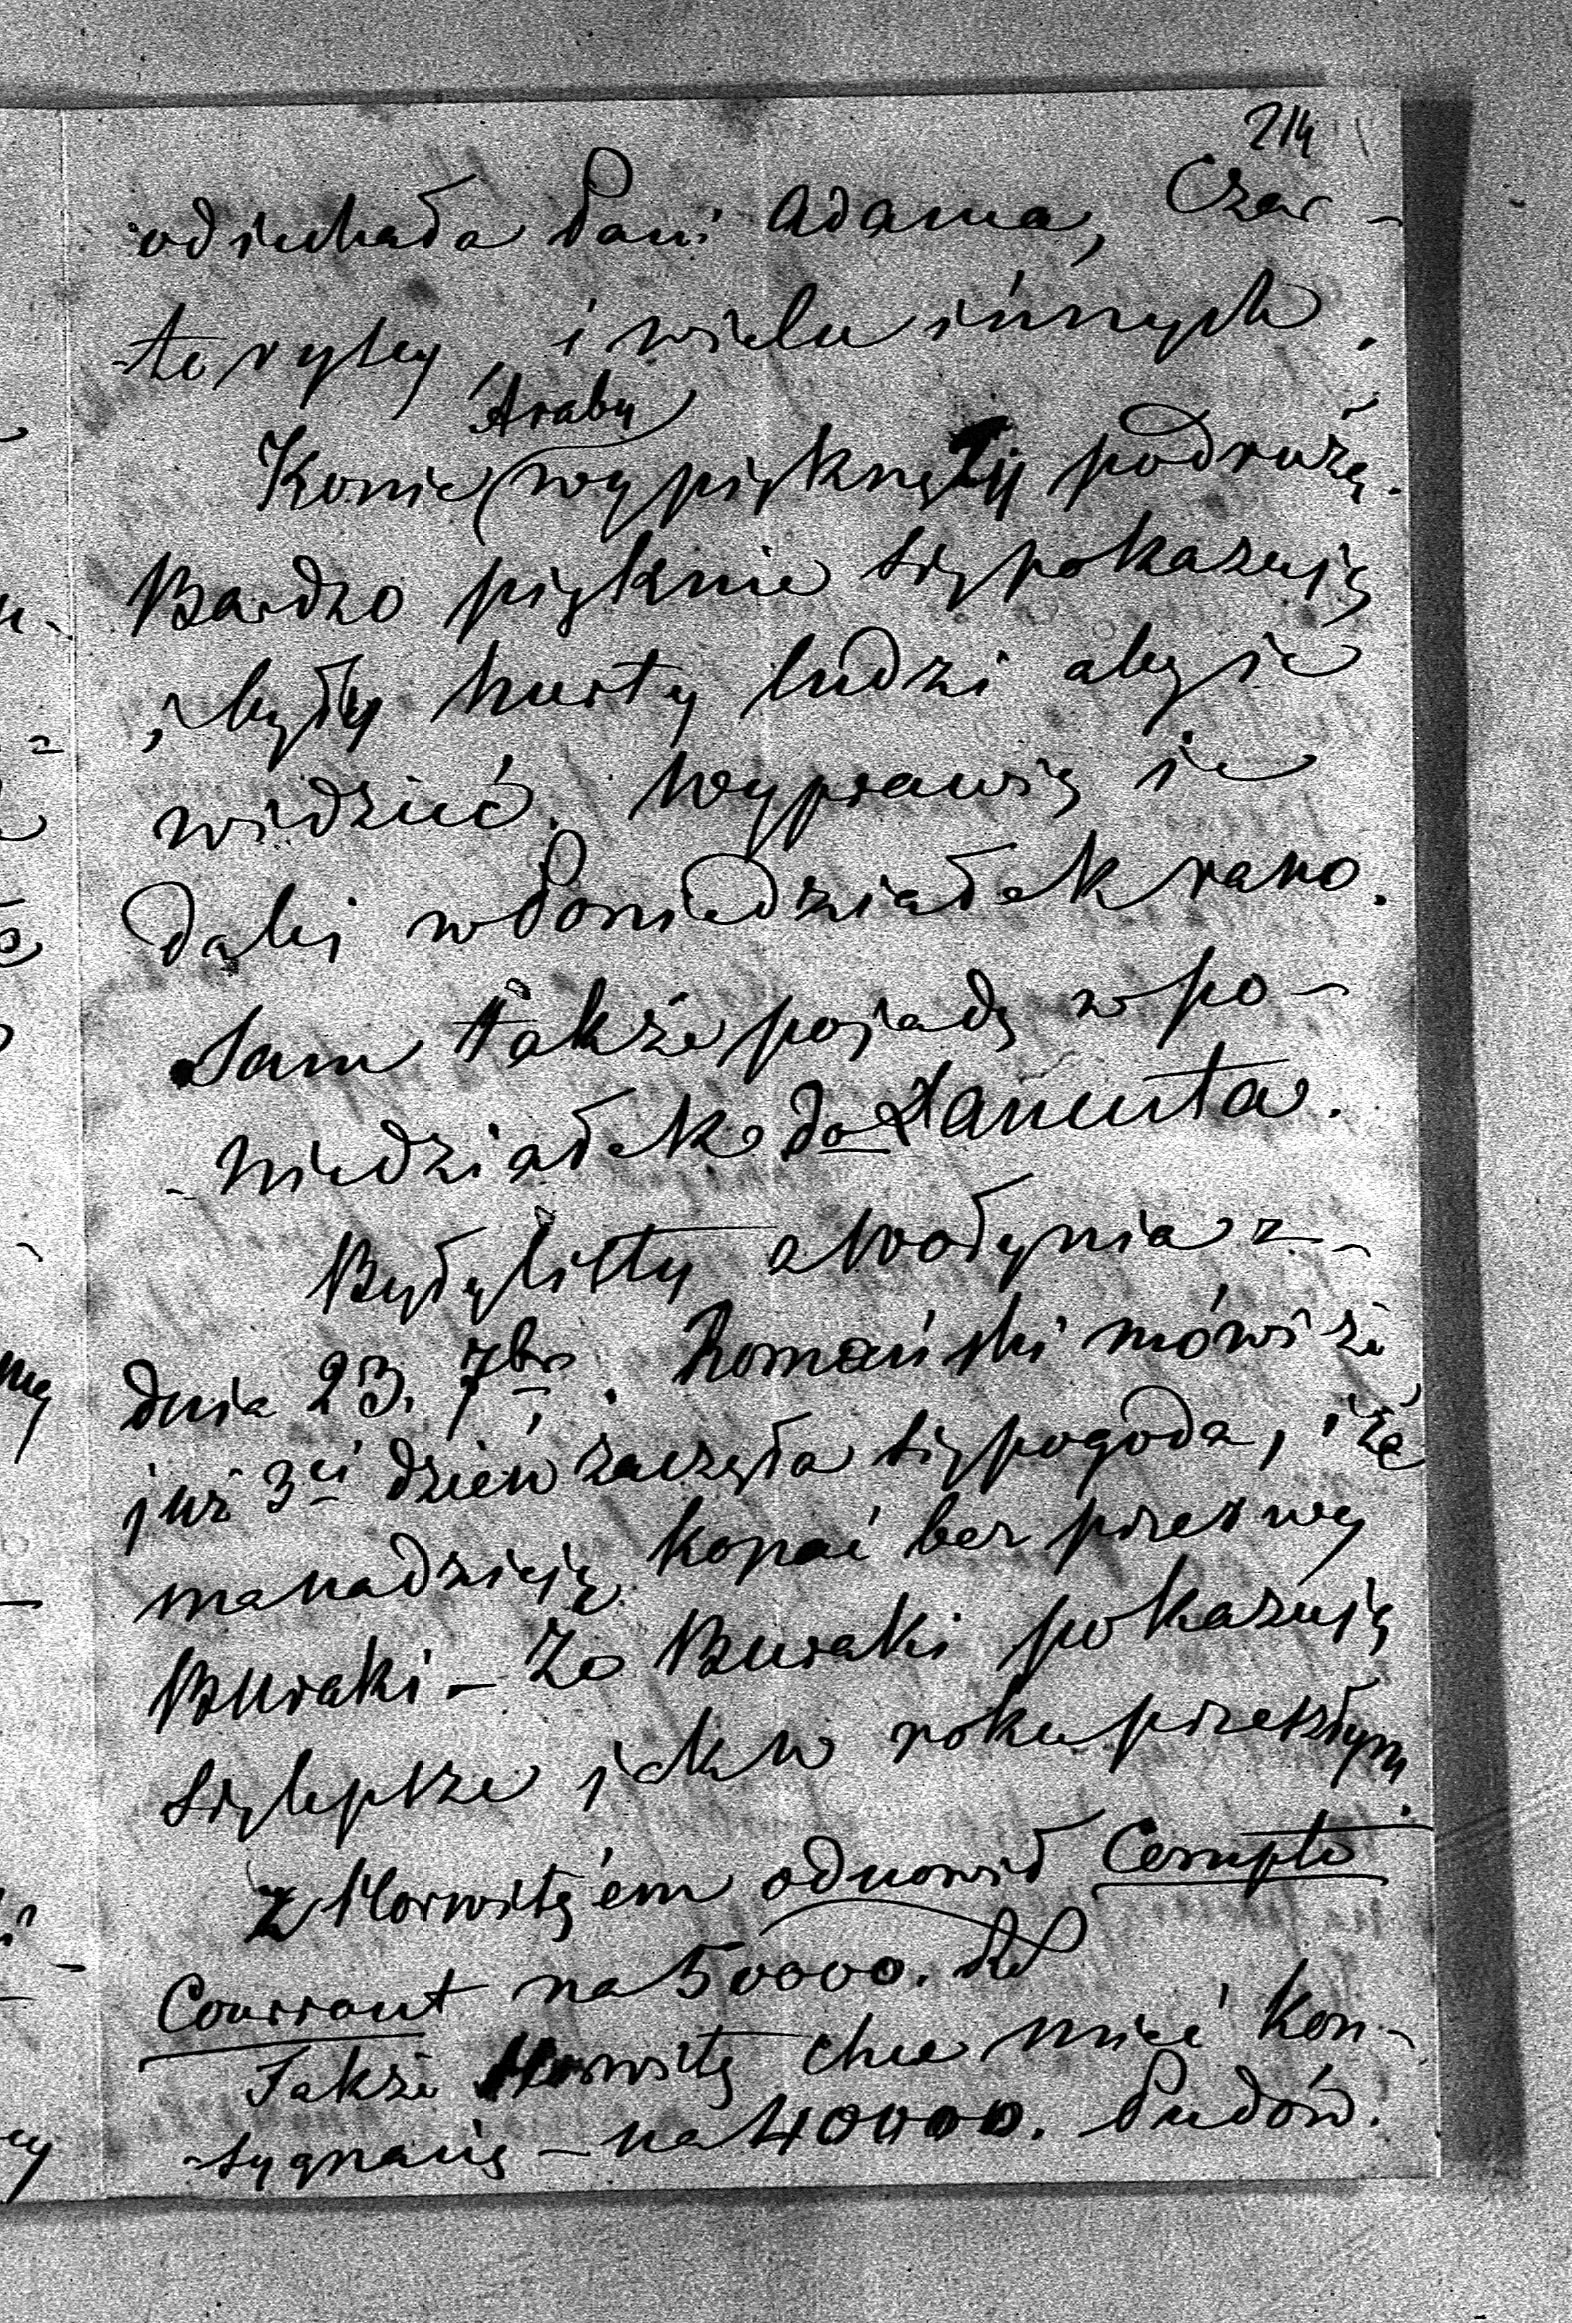 214
odjechała Pani Adama, Czar-
-toryscy i wielu innych.
Araby
Konie wypiękniały podróżą.
Bardzo pięknie się pokazują
, były hurty ludzi aby je
widzieć. Wyprawię je
dalej w Poniedziałek rano.
Sam także pojadę w po-
-niedziałek do Łańcuta.
Były listy z Wołynia z
dnia 23. 7bra. Romański mówi że
już 3ci dzień zaczęła się pogoda, i że
ma nadzieję kopać bez przerwy
Buraki – Że Buraki pokazują
się lepsze jak w roku przeszłym.
Z Horwitz'em odnowił Compte
Courrant na 50000.
Także Horwitz chce mieć kon-
-sygnację – na 40000. Pudów.